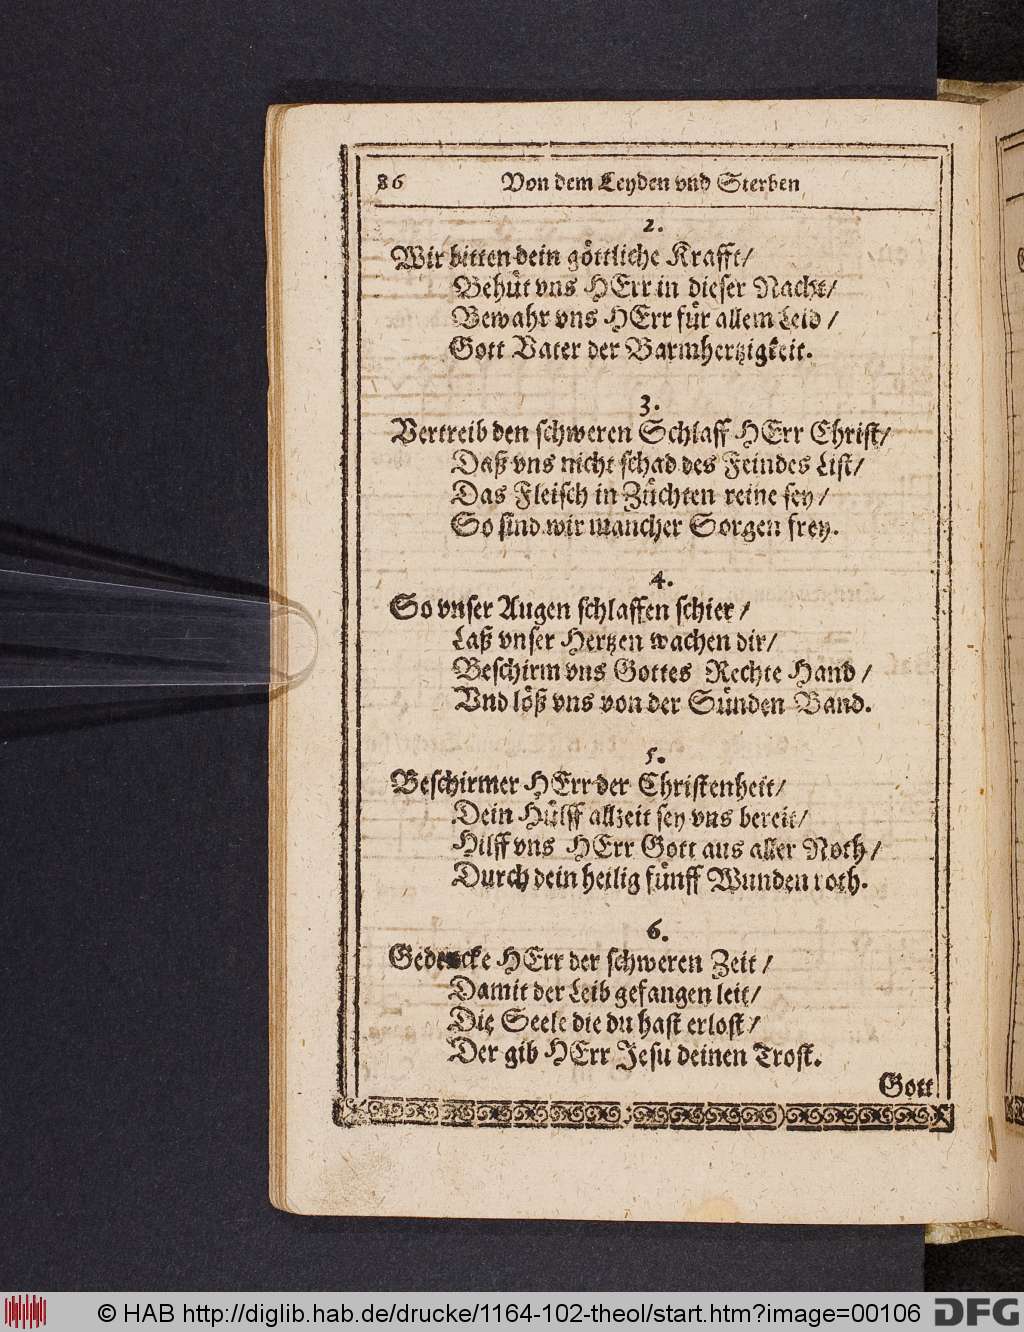 86 Von dem Leyden vnd Sterben
2.
Wir bitten dein göttliche Krafft/
Behüt vns HErr in dieser Nacht/
Bewahr vns HErr für allem Leid /
Gott Vater der Barmhertzigkeit.
3.
Vertreib den schweren Schlaff HErr Christ/
Daß vns nicht schad des Feindes List/
Das Fleisch in Züchten reine sey/
So sind wir mancher Sorgen frey.
4.
So vnser Augen schlaffen schier /
Laß vnser Hertzen wachen dir/
Beschirm vns Gottes Rechte Hand /
Vnd löß vns von der Sünden Band.
5.
Beschirmer HErr der Christenheit/
Dein Hülff allzeit sey vns bereit/
Hilff vns HErr Gott aus aller Noth/
Durch dein heilig fünff Wunden roth.
6.
Gedencke HErr der schweren Zeit /
Damit der Leib gefangen leit/
Die Seele die du hast erlost/
Der gib HErr Jesu deinen Trost.
Gott
© HAB http://diglib.hab.de/drucke/1164-102-theol/start.htm?image=00106 DFG